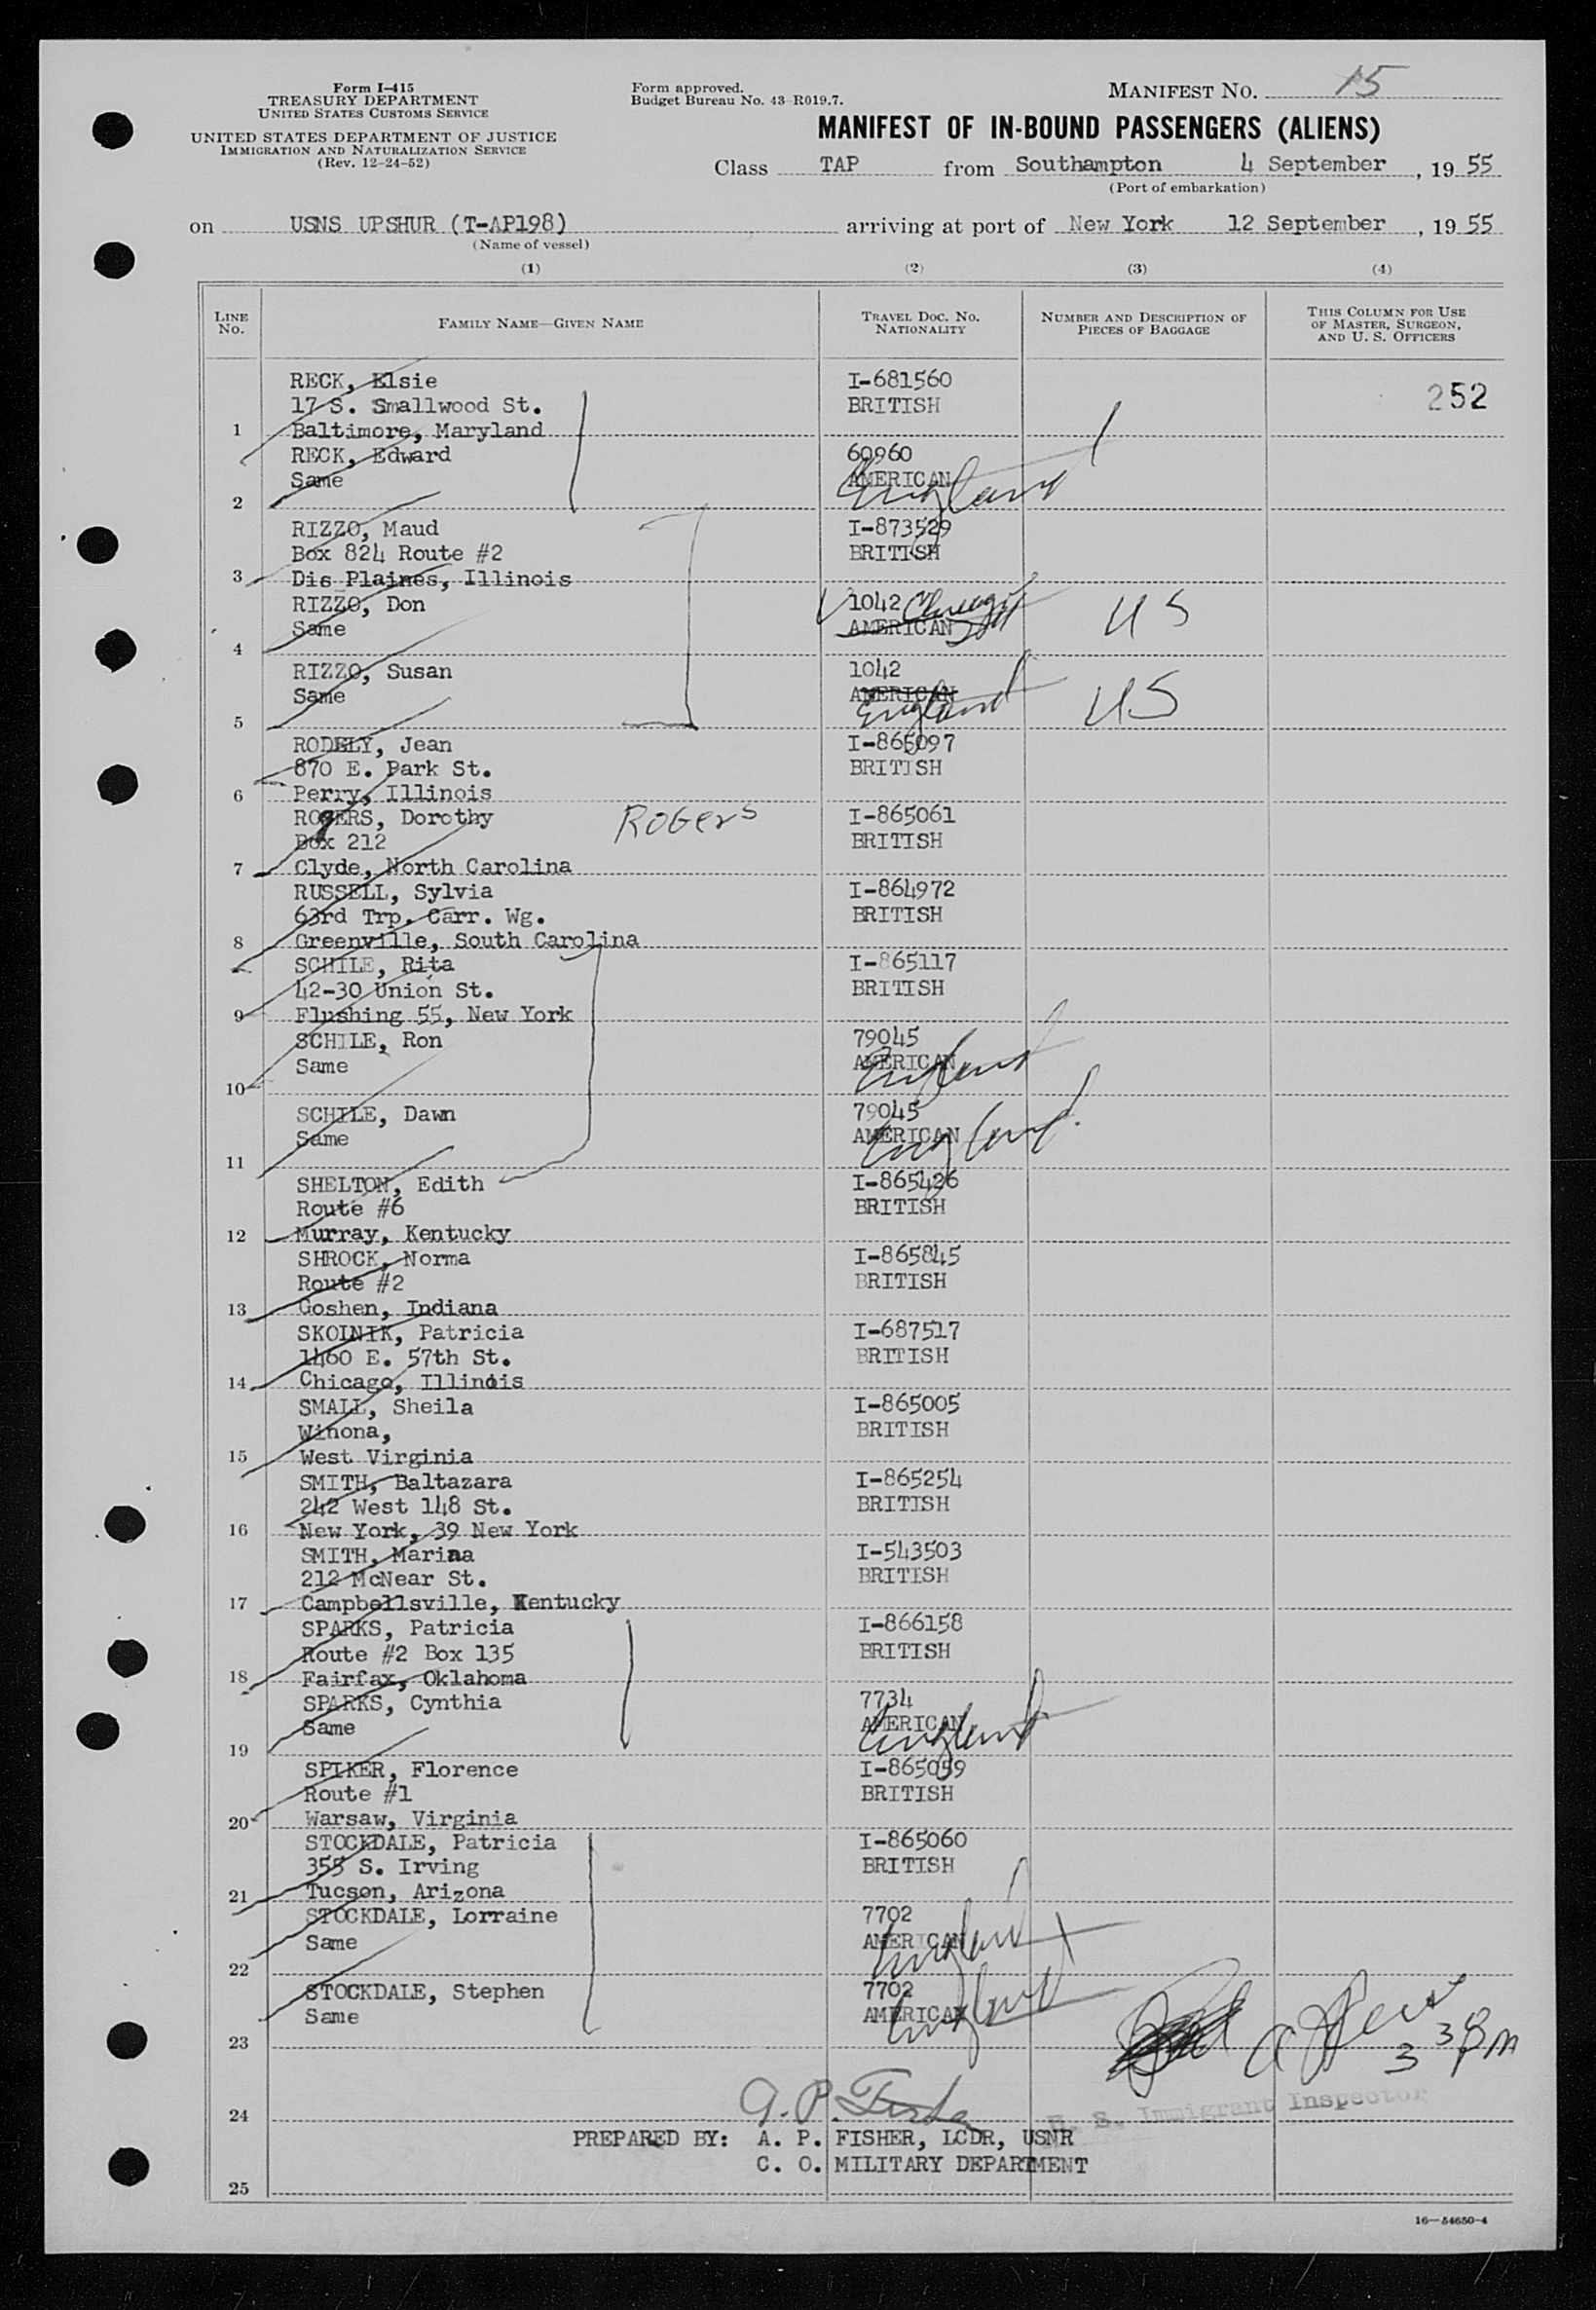 Form I-415
TREASURY DEPARTMENT
UNITED STATES CUSTOMS SERVICE
UNITED STATES DEPARTMENT OF JUSTICE
IMMIGRATION AND NATURALIZATION SERVICE
(Rev. 12-24-52)
Form approved.
Budget Bureau No. 43-R019.7.
MANIFEST NO. 15
MANIFEST OF IN-BOUND PASSENGERS (ALIENS)
Class TAP from Southampton 4 September, 19 55
(Port of embarkation)
on USNS UPSHUR (T-AP198) arriving at port of New York 12 September, 19 55
(Name of vessel)
(1) (2) (3) (4)
LINE NO. FAMILY NAME—GIVEN NAME TRAVEL DOC. NO. NATIONALITY NUMBER AND DESCRIPTION OF PIECES OF BAGGAGE THIS COLUMN FOR USE OF MASTER, SURGEON, AND U. S. OFFICERS
RECK, Elsie I-681560
17 S. Smallwood St. BRITISH 252
1 Baltimore, Maryland
RECK, Edward 60960
Same AMERICAN England
2
RIZZO, Maud I-873529
Box 824 Route #2 BRITISH
3 Dis Plaines, Illinois
RIZZO, Don 1042 Chicago
Same AMERICAN US
4
RIZZO, Susan 1042
Same AMERICAN England US
5
RODELY, Jean I-865097
870 E. Park St. BRITISH
6 Perry, Illinois
ROGERS, Dorothy Rogers I-865061
Box 212 BRITISH
7 Clyde, North Carolina
RUSSELL, Sylvia I-864972
63rd Trp. Carr. Wg. BRITISH
8 Greenville, South Carolina
SCHILE, Rita I-865117
42-30 Union St. BRITISH
9 Flushing 55, New York
SCHILE, Ron 79045
Same AMERICAN England
10
SCHILE, Dawn 79045
Same AMERICAN England
11
SHELTON, Edith I-865426
Route #6 BRITISH
12 Murray, Kentucky
SHROCK, Norma I-865845
Route #2 BRITISH
13 Goshen, Indiana
SKOINIK, Patricia I-687517
1460 E. 57th St. BRITISH
14 Chicago, Illinois
SMALL, Sheila I-865005
Winona, BRITISH
15 West Virginia
SMITH, Baltazara I-865254
242 West 148 St. BRITISH
16 New York, 39 New York
SMITH, Marina I-543503
212 McNear St. BRITISH
17 Campbellsville, Kentucky
SPARKS, Patricia I-866158
Route #2 Box 135 BRITISH
18 Fairfax, Oklahoma
SPARKS, Cynthia 7734
Same AMERICAN England
19
SPIKER, Florence I-865059
Route #1 BRITISH
20 Warsaw, Virginia
STOCKDALE, Patricia I-865060
355 S. Irving BRITISH
21 Tucson, Arizona
STOCKDALE, Lorraine 7702
Same AMERICAN England
22
STOCKDALE, Stephen 7702
Same AMERICAN England
23
3 30 pm
A. P. Fisher
24 U. S. Immigrant Inspector
PREPARED BY: A. P. FISHER, LCDR, USNR
C. O. MILITARY DEPARTMENT
25
16—54650-4